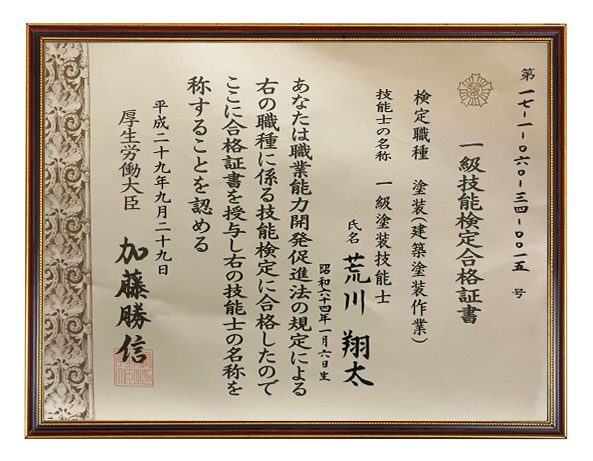 第一七-一-〇六〇-三四-〇〇一五号
一級技能検定合格証書
検定職種 塗装(建築塗装作業)
技能士の名称 一級塗装技能士
氏名 荒川 翔太
昭和六十四年一月六日生
あなたは職業能力開発促進法の規定による
右の職種に係る技能検定に合格したので
ここに合格証書を授与し右の技能士の名称を
称することを認める
平成二十九年九月二十九日
厚生労働大臣 加藤勝信